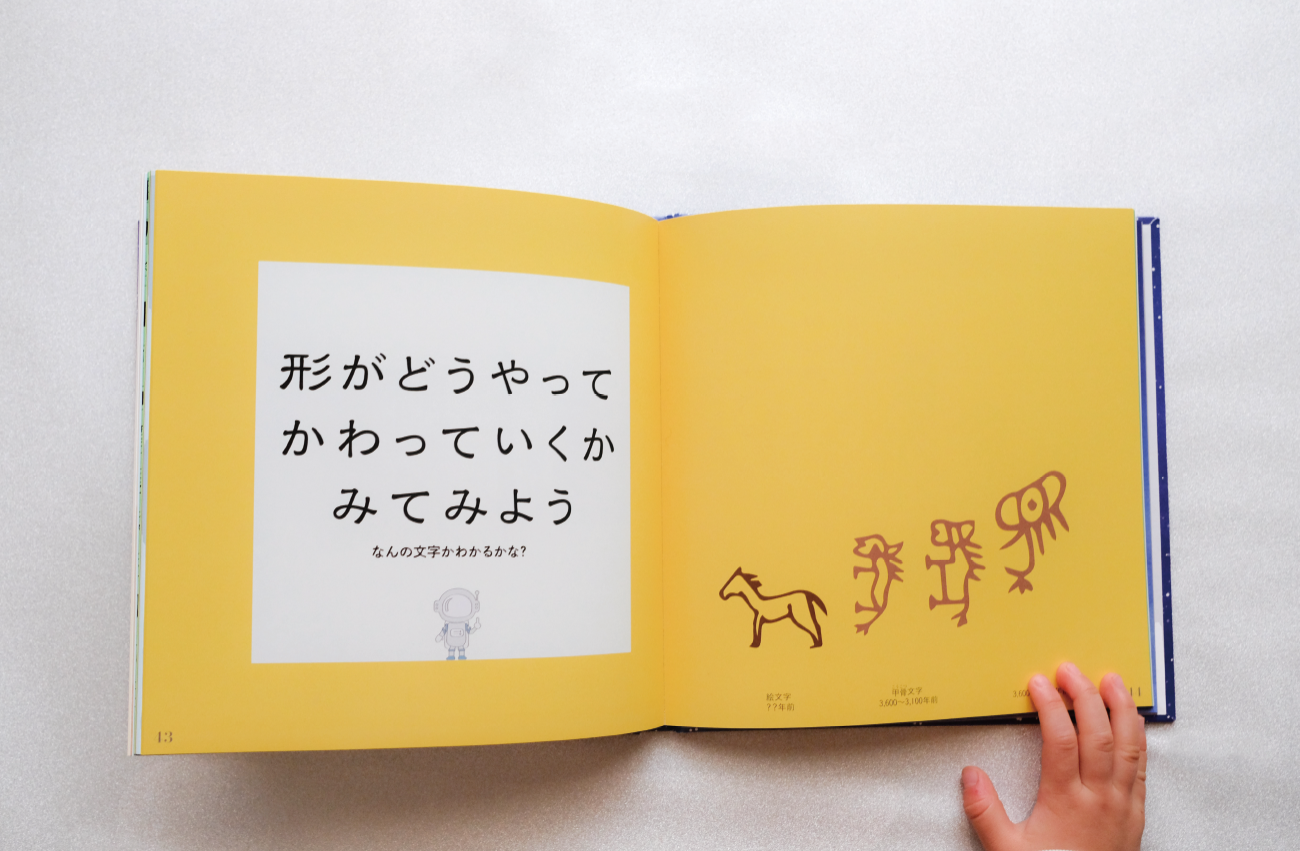 形がどうやって
かわっていくか
みてみよう
なんの文字かわかるかな?
13
絵文字
??年前
甲骨文字
3,600〜3,100年前